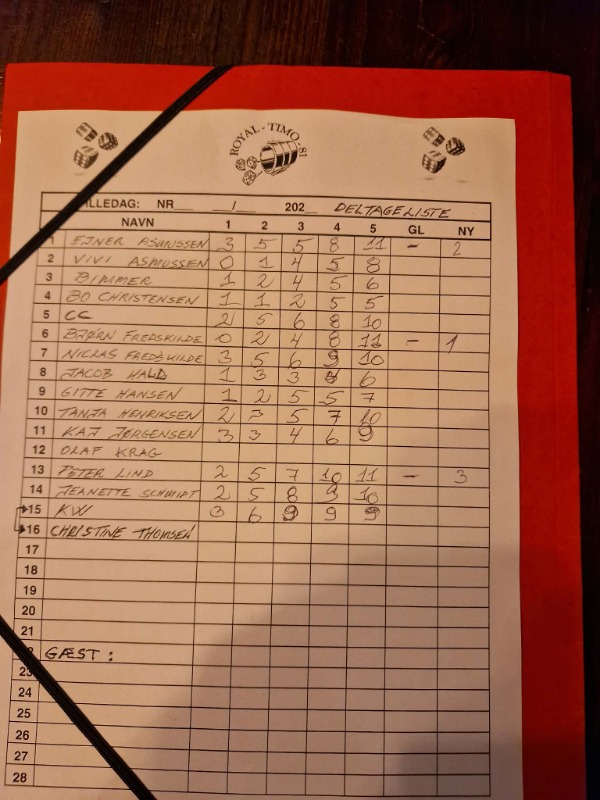 ROYAL - TIMO - 81
ILLEDAG: NR ___ __/__ 202__ DELTAGELISTE
NAVN 1 2 3 4 5 GL NY
1 EJNER ASMUSSEN 3 5 5 8 11 - 2
2 VIVI ASMUSSEN 0 1 4 5 8
3 BIMMER 1 2 4 5 6
4 BO CHRISTENSEN 1 1 2 5 5
5 CC 2 5 6 8 10
6 BJØRN FREDSKILDE 0 2 4 8 11 - 1
7 NICLAS FREDSKILDE 3 5 6 9 10
8 JACOB HALD 1 3 3 4 6
9 GITTE HANSEN 1 2 5 5 7
10 TANJA HENRIKSEN 2 3 5 7 10
11 KAJ JØRGENSEN 3 3 4 6 9
12 OLAF KRAG
13 PETER LIND 2 5 7 10 11 - 3
14 JEANETTE SCHMIDT 2 5 8 9 10
15 KW 3 6 9 9 9
16 CHRISTINE THOMSEN
17
18
19
20
21
GÆST :
23
24
25
26
27
28